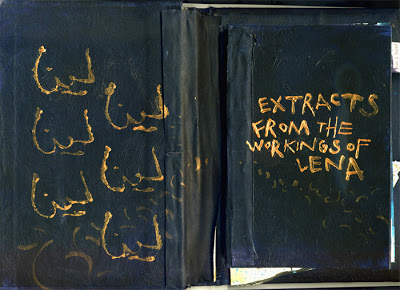 لينا
لينا
لينا
لينا
لينا
لينا
EXTRACTS
FROM THE
WORKINGS OF
LENA